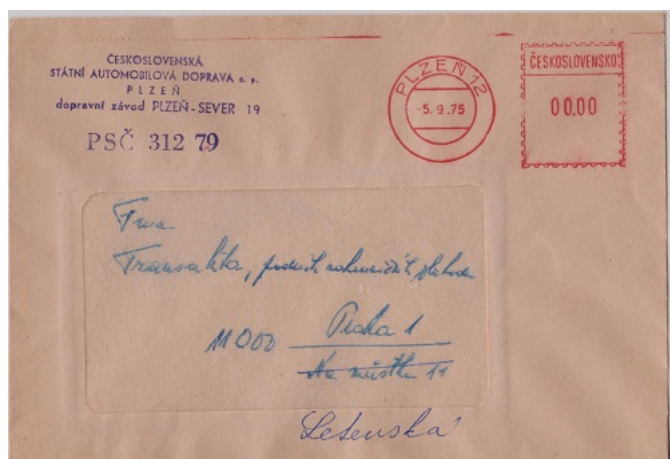 ČESKOSLOVENSKÁ
STÁTNÍ AUTOMOBILOVÁ DOPRAVA n. p.
PLZEŇ
dopravní závod PLZEŇ - SEVER 19
PSČ 312 79
PLZEŇ 12
-5. 9. 75
ČESKOSLOVENSKO
00.00
Transakta, podnik
11000 Praha 1
Na můstku 11
Letenská